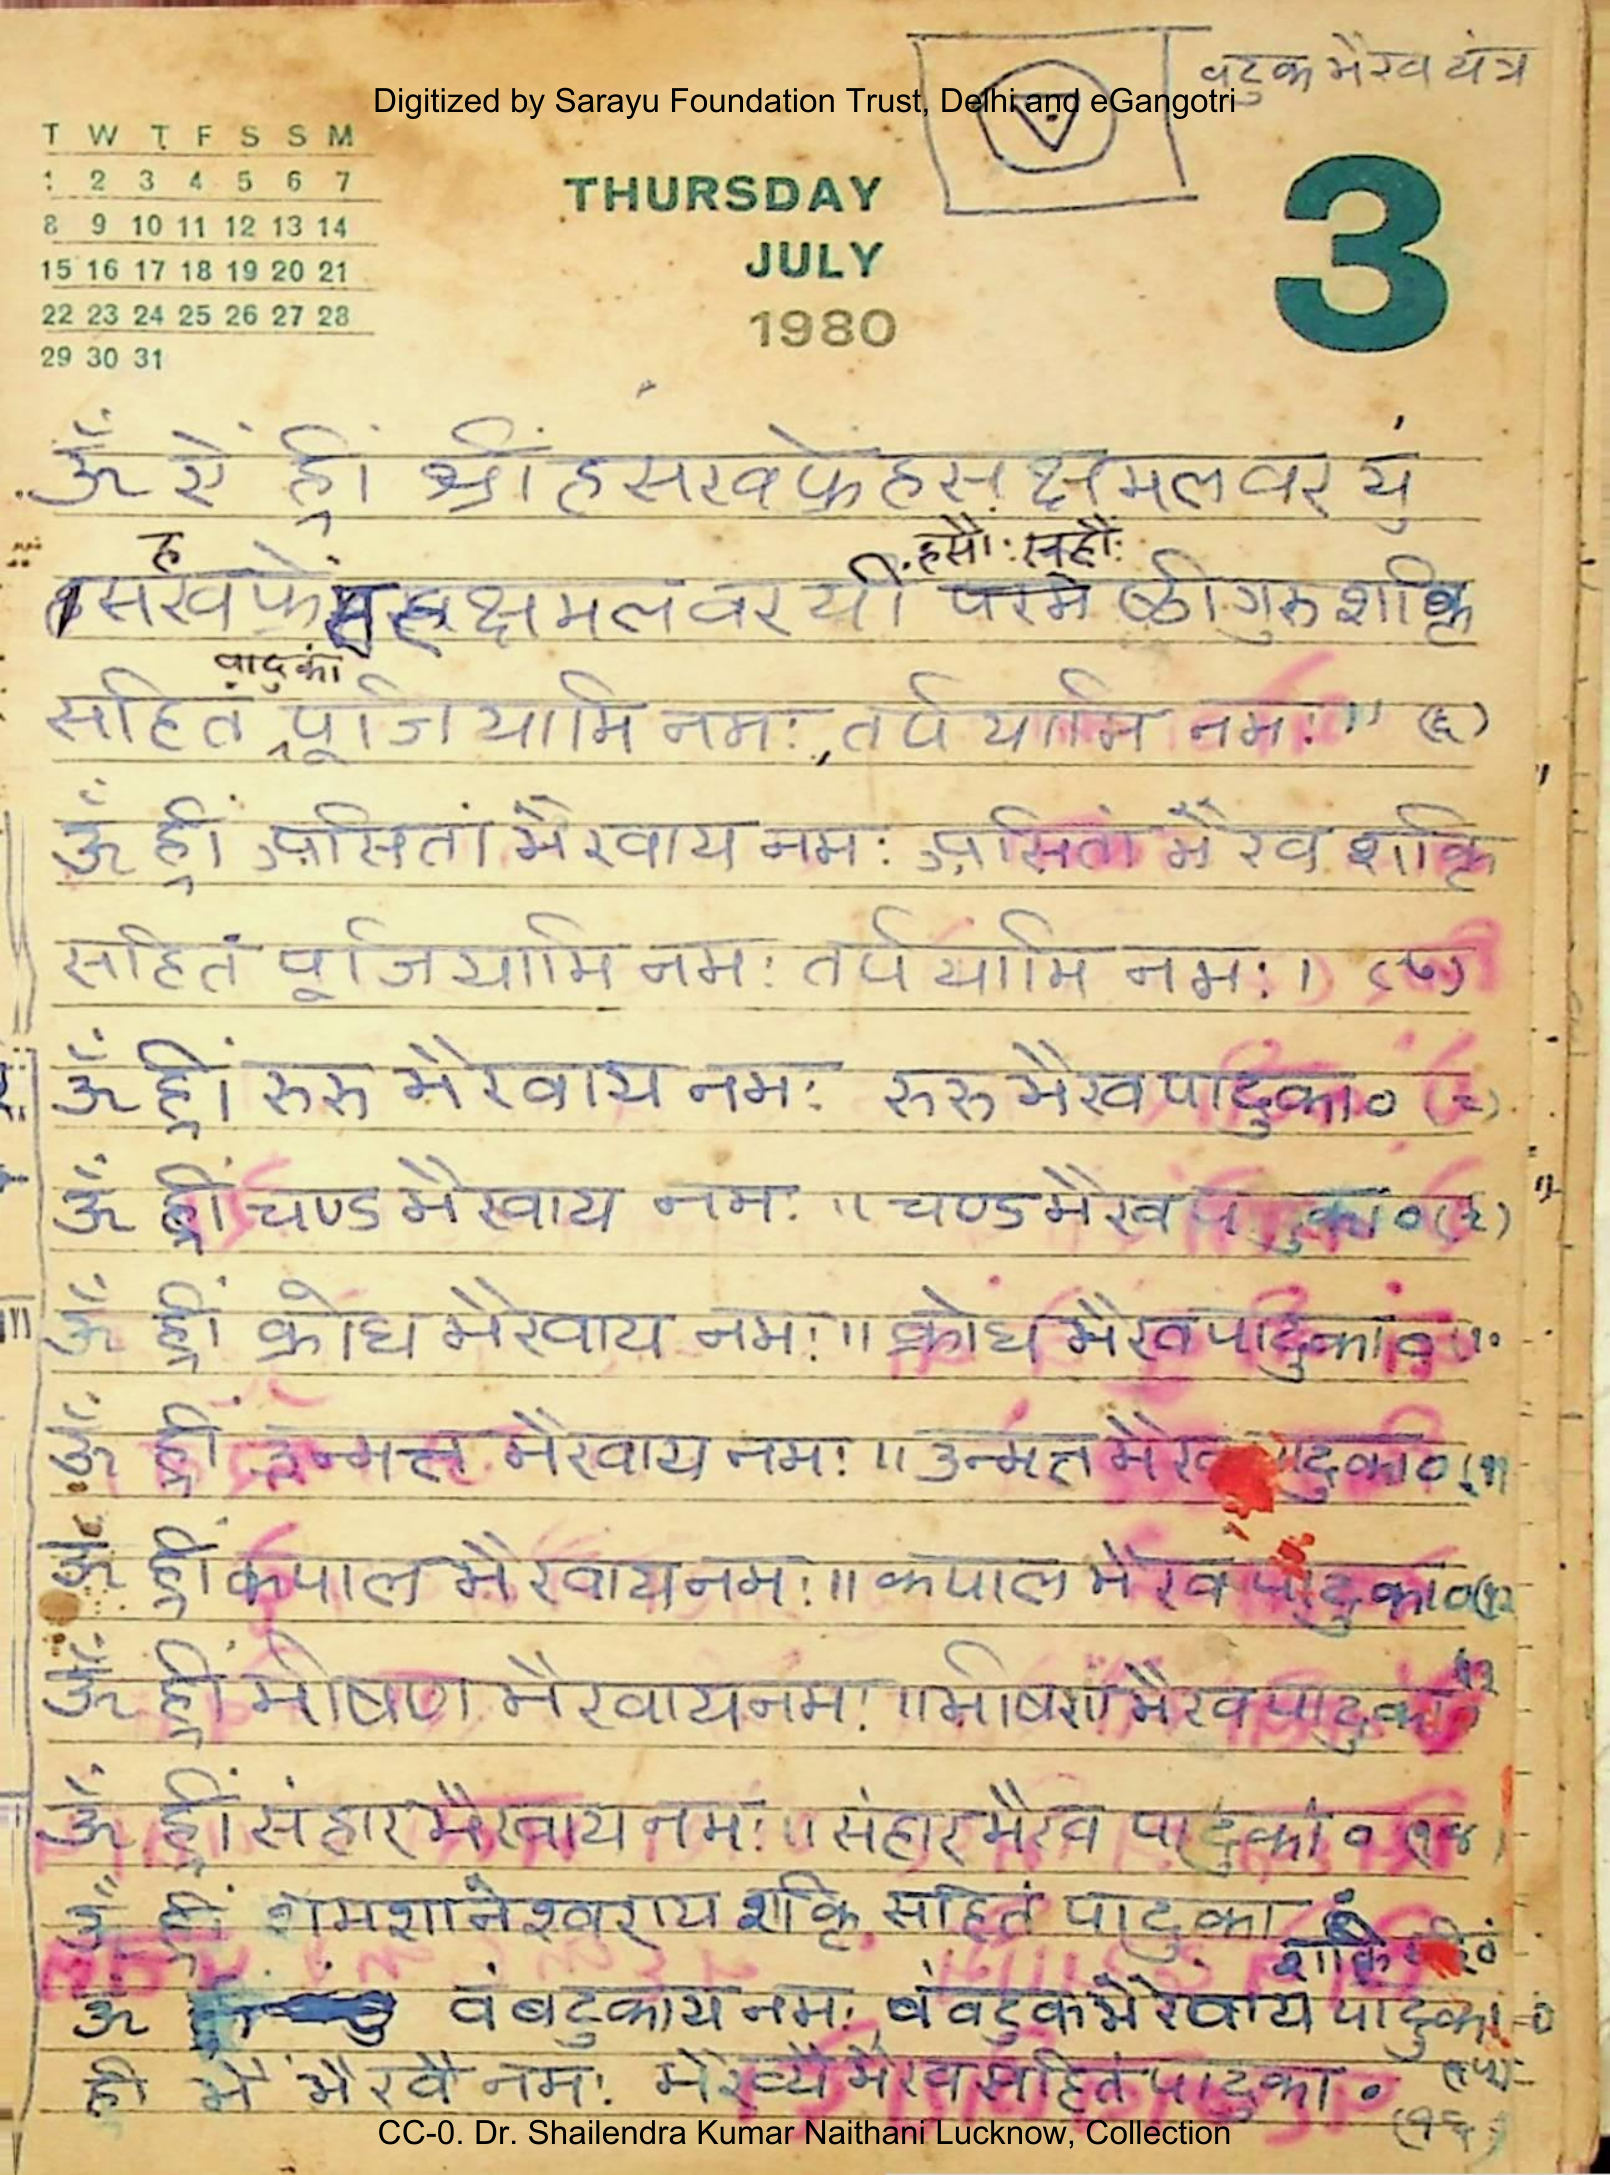 वटुक भैरव यंत्र
Digitized by Sarayu Foundation Trust, Delhi and eGangotri
T W T F S S M
1 2 3 4 5 6 7
8 9 10 11 12 13 14
15 16 17 18 19 20 21
22 23 24 25 26 27 28
29 30 31
THURSDAY
JULY
1980
3
ॐ ऐं ह्रीं श्रीं हसखफ्रें हस क्षमलवरयुं
ह हसौः स्हौः
सखफ्रें क्षमलवरयीं श्री गुरु शक्ति
पादुकां
सहितं पूजियामि नमः, तर्पयामि नमः ।। (६)
ॐ ह्रीं असितां भैरवाय नमः असितां भैरव शक्ति
सहितं पूजियामि नमः तर्पयामि नमः । (७)
ॐ ह्रीं रुरु भैरवाय नमः रुरु भैरव पादुकां० (८)
ॐ ह्रीं चण्ड भैरवाय नमः ॥ चण्ड भैरव पादुकां० (९)
ॐ ह्रीं क्रोध भैरवाय नमः ॥ क्रोध भैरव पादुकां० १०
ॐ ह्रीं उन्मत्त भैरवाय नमः ॥ उन्मत्त भैरव पादुकां० (११
ॐ ह्रीं कपाल भैरवाय नमः ॥ कपाल भैरव पादुकां० (१२
ॐ ह्रीं भीषण भैरवाय नमः ॥ भीषण भैरव पादुकां० १३
ॐ ह्रीं संहार भैरवाय नमः ॥ संहार भैरव पादुकां० (१४)
ॐ ह्रीं शमशानेश्वराय शक्ति सहितं पादुकां
शक्ति
ॐ वं बटुकाय नमः, वं वटुक भैरवाय पादुकां०
ह्रीं भैं भैरवै नमः भैरव्यै भैरव सहितं पादुकां० (१५)
(१६)
CC-0. Dr. Shailendra Kumar Naithani Lucknow, Collection